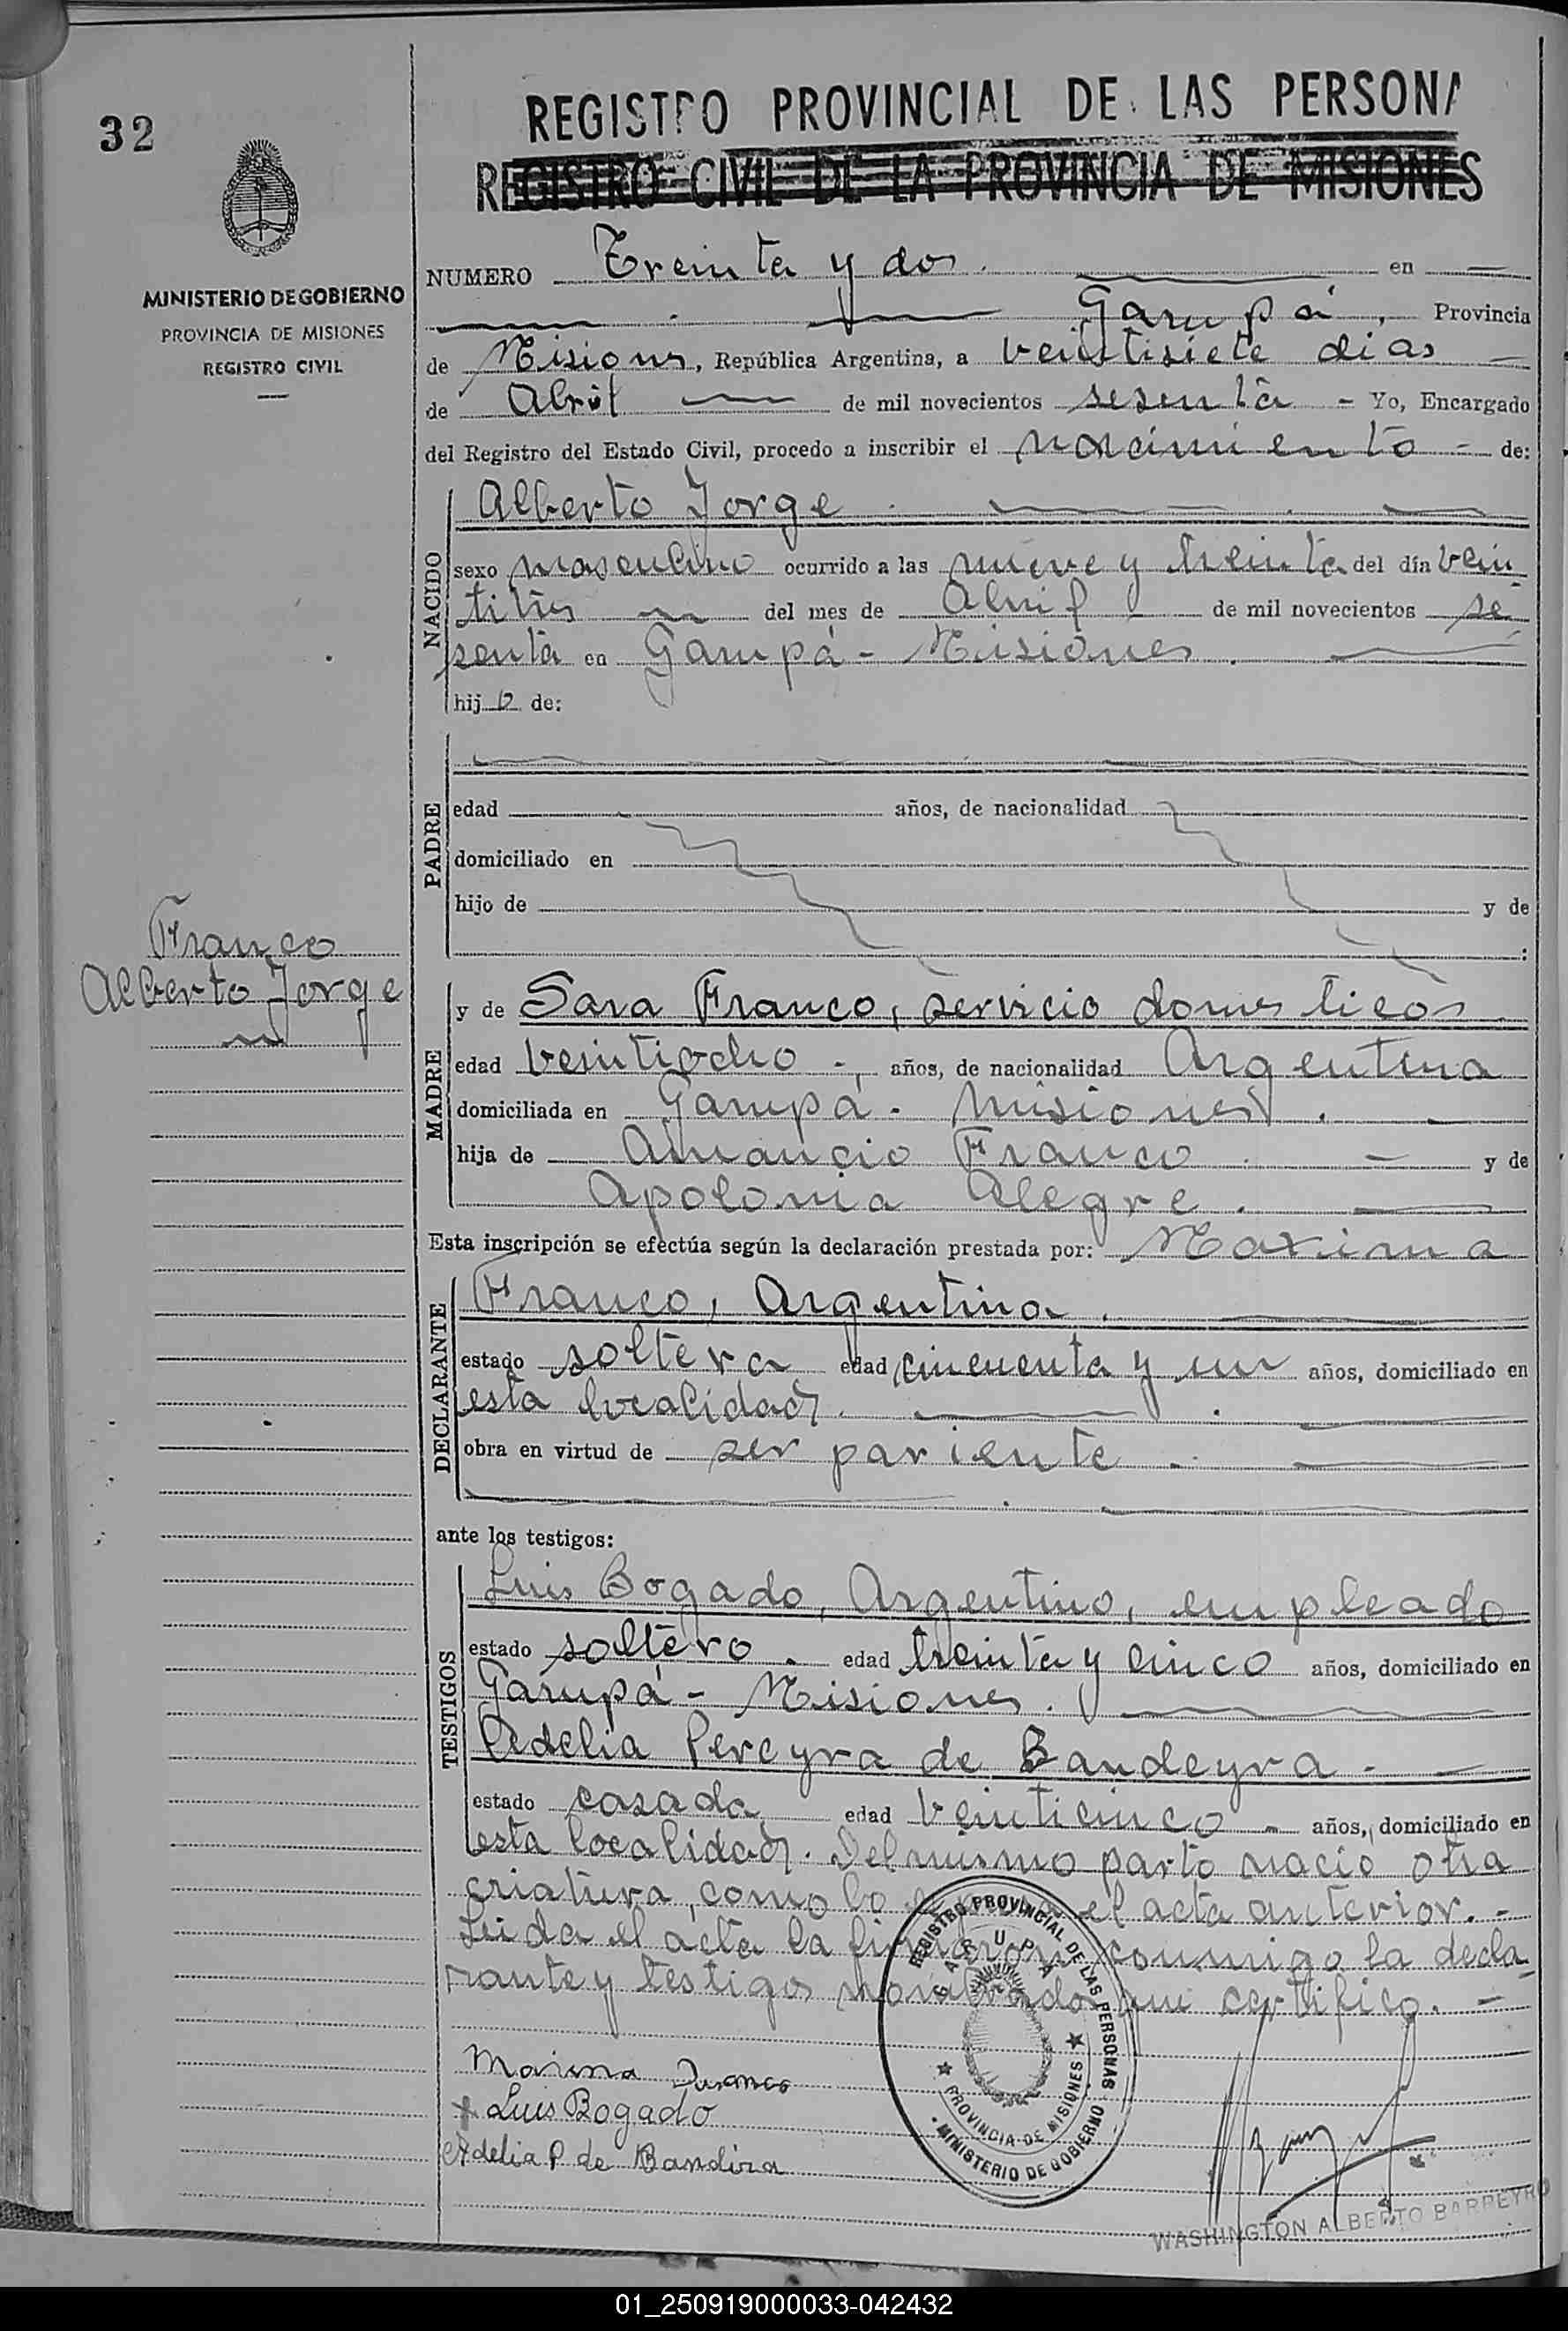 32
REGISTRO PROVINCIAL DE LAS PERSONA
REGISTRO CIVIL DE LA PROVINCIA DE MISIONES
MINISTERIO DE GOBIERNO
PROVINCIA DE MISIONES
REGISTRO CIVIL
NUMERO Treinta y dos. en
Garupá, Provincia
de Misiones, República Argentina, a veintisiete dias
de Abril de mil novecientos sesenta - Yo, Encargado
del Registro del Estado Civil, procedo a inscribir el nacimiento - de:
NACIDO
Alberto Jorge.
sexo masculino ocurrido a las nueve y treinta del día vein
titrés del mes de Abril de mil novecientos se
senta en Garupá - Misiones.
hijo de:
PADRE
edad años, de nacionalidad
domiciliado en
hijo de y de
:
Franco
Alberto Jorge
MADRE
y de Sara Franco, servicio domesticos
edad veintiocho -, años, de nacionalidad Argentina
domiciliada en Garupá - Misiones.
hija de Amancio Franco y de
Apolonia Alegre.
Esta inscripción se efectúa según la declaración prestada por: Maxima
DECLARANTE
Franco, Argentina.
estado soltera edad cincuenta y un años, domiciliado en
esta localidad.
obra en virtud de ser pariente
ante los testigos:
TESTIGOS
Luis Bogado, Argentino, empleado
estado soltero. edad treinta y cinco años, domiciliado en
Garupá - Misiones.
Adelia Pereyra de Bandeyra -
estado casada edad veinticinco - años, domiciliado en
esta localidad. Del mismo parto nació otra
criatura, como lo el acta anterior. -
Leida el acta la firmaron conmigo la decla
rante y testigos nombrados que certifico. -
Luis Bogado
Adelia P de Bandira
REGISTRO PROVINCIAL DE LAS PERSONAS
GARUPA
PROVINCIA DE MISIONES
MINISTERIO DE GOBIERNO
WASHINGTON ALBERTO BARREYRO
01_250919000033-042432